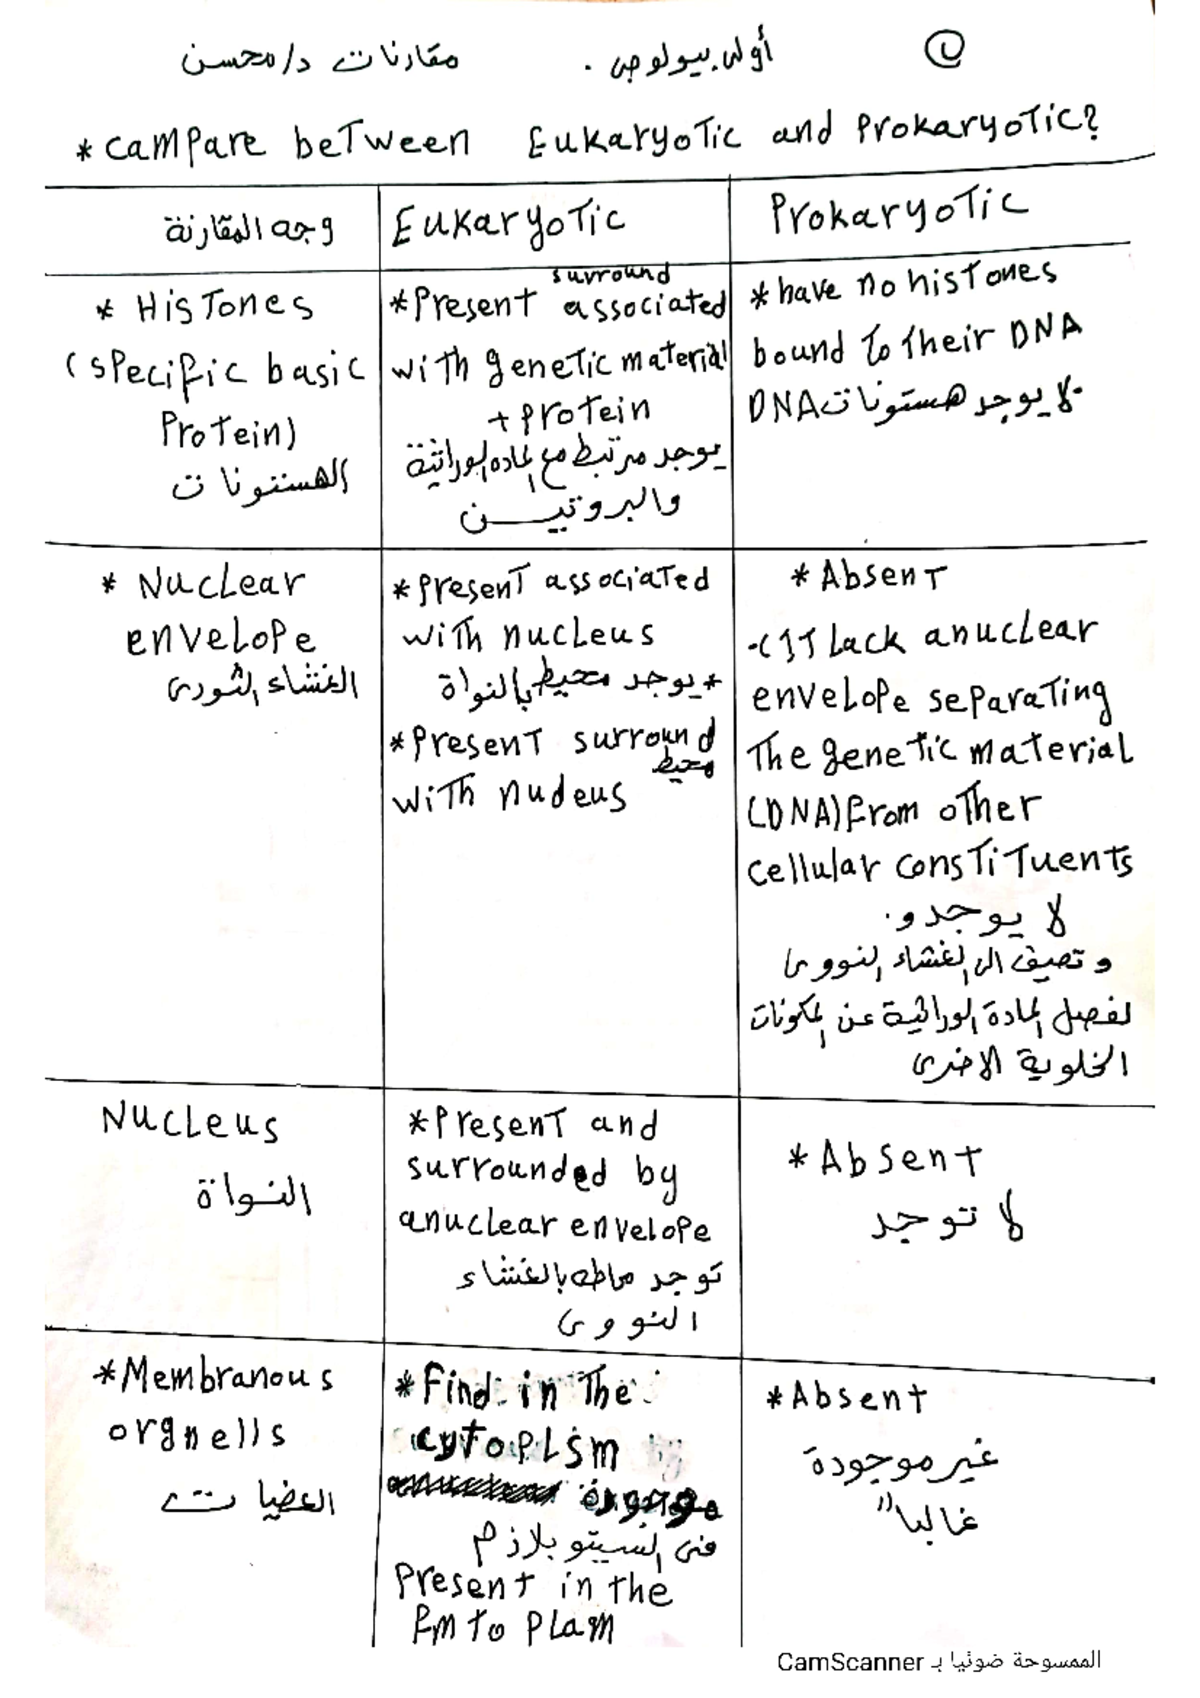 أولى بيولوجى . مقارنات د/محسن
*campare between Eukaryotic and Prokaryotic?
وجه المقارنة
Eukaryotic
Prokaryotic
* Histones
(specific basic
Protein)
الهستونات
surround
*Present associated
with genetic material
+ protein
يوجد مرتبط مع المادة الوراثية
والبروتيـــن
*have no histones
bound to their DNA
لا يوجد هستونات DNA
* Nuclear
envelope
الغشاء النووى
*Present associated
with nucleus
*يوجد محيط بالنواة
*Present surround
محيط
with nudeus
*Absent
lack anuclear
envelope separating
the genetic material
(DNA)from other
cellular constituents
لا يوجد و.
الغشاء النووى
لفصل المادة الوراثية عن المكونات
الخلوية الاخرى
Nucleus
النواة
*Present and
surrounded by
anuclear envelope
توجد محاطه بالغشاء
النووى
*Absent
لا توجد
*Membranous
orgnells
العضيات
*Find in The
cytoplsm
موجودة
فى السيتوبلازم
Present in the
*Absent
غير موجودة
غالبا"
الممسوحة ضوئيا بـ CamScanner